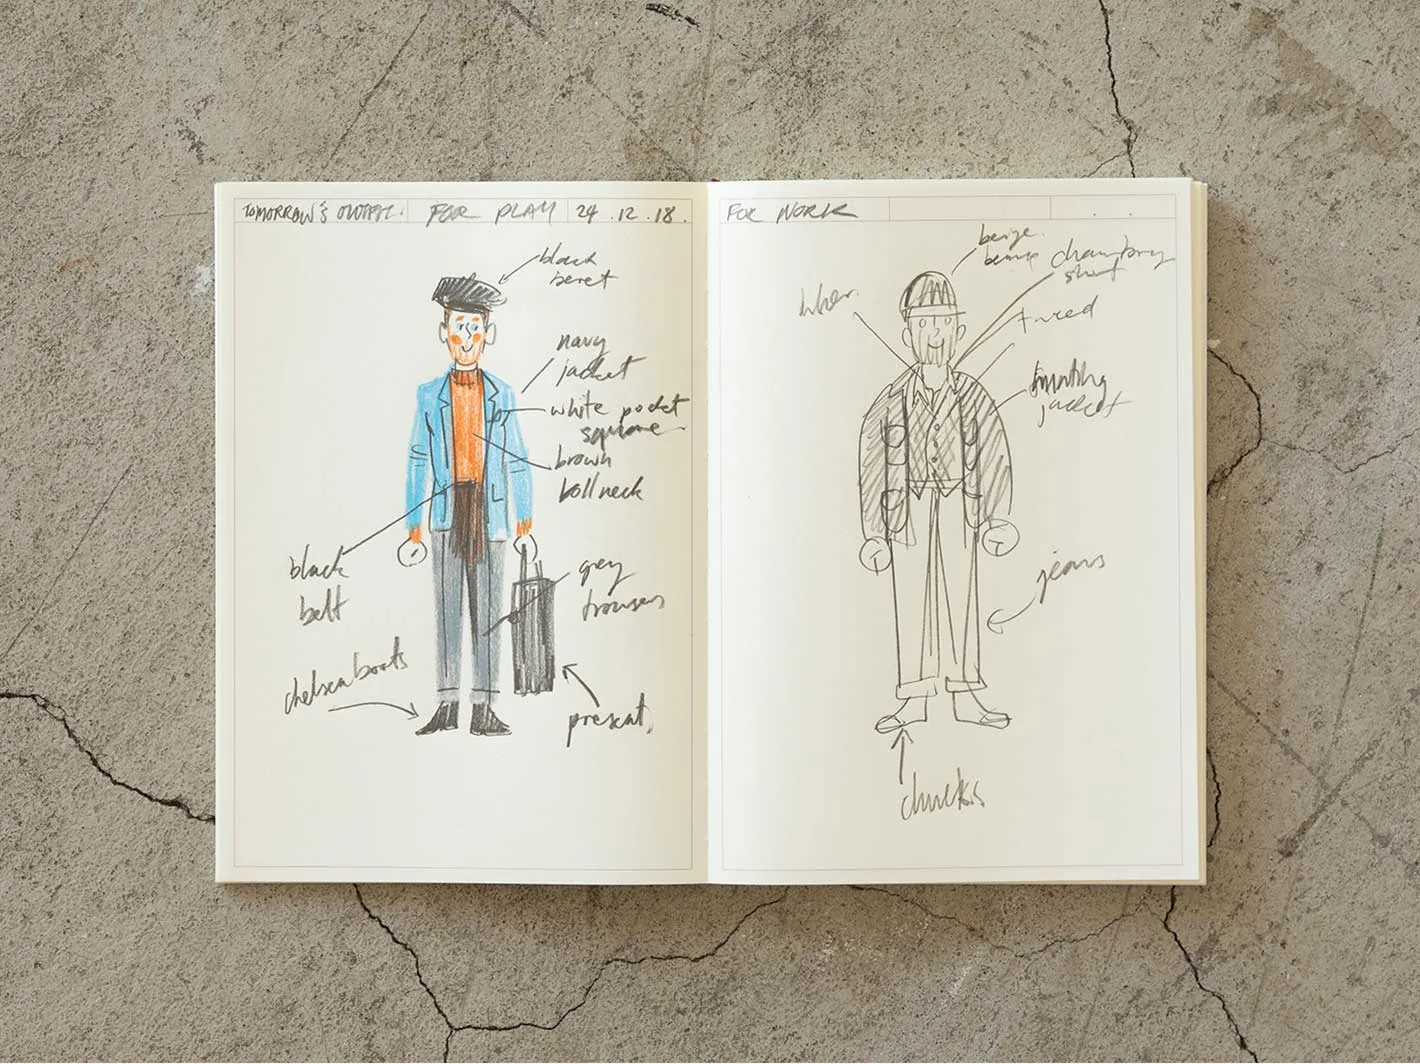 TOMORROW'S OUTFIT: FOR PLAY 24.12.18.
black
beret
navy
jacket
white pocket
square
brown
rollneck
black
belt
grey
trousers
chelsea boots
present.
FOR WORK
beige
chambray
shirt
hunting
jacket
jeans
chucks